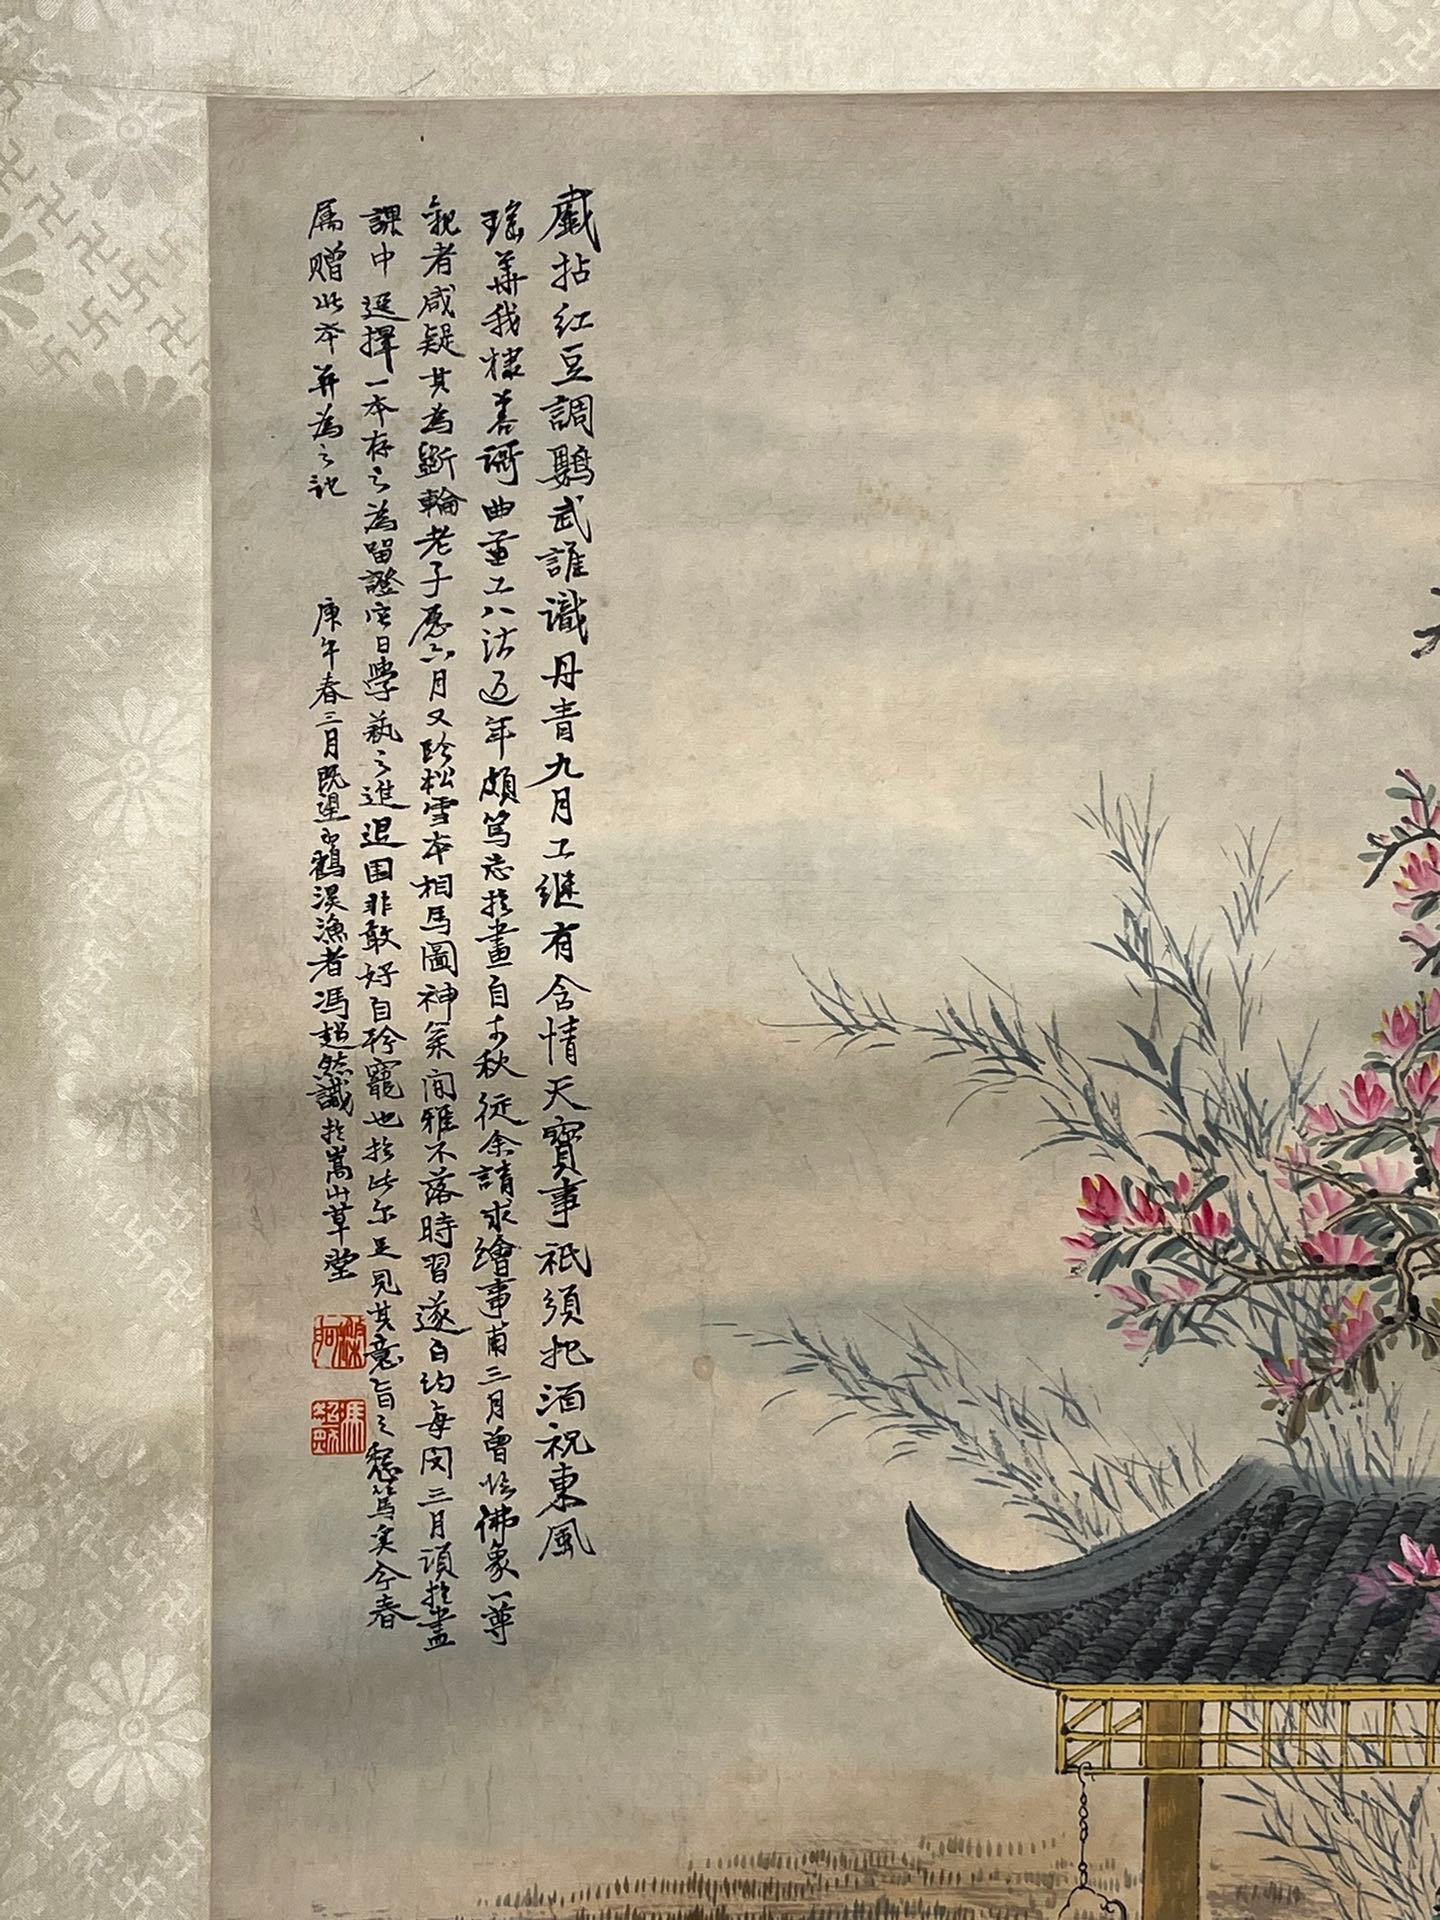 戲拈紅豆調鸚武誰識丹青九月工継有含情天寶事祇須把酒祝東風
瑤華我棣善謌曲並工八法近年頗篤志於畫自去秋從余請求繪事甫三月曾臨佛象一尊
観者咸疑其為斲輪老子愿六月又臨松雪本相馬圖神采閒雅不落時習遂自約每閱三月須於畫
課中選擇一本存之為留證它日學藝之進退固非敢好自矜寵也於此尓足見其意旨之懇篤矣今春
屬贈此本并為之記 庚午春三月既望白鶴渓漁者馮超然識於嵩山草堂